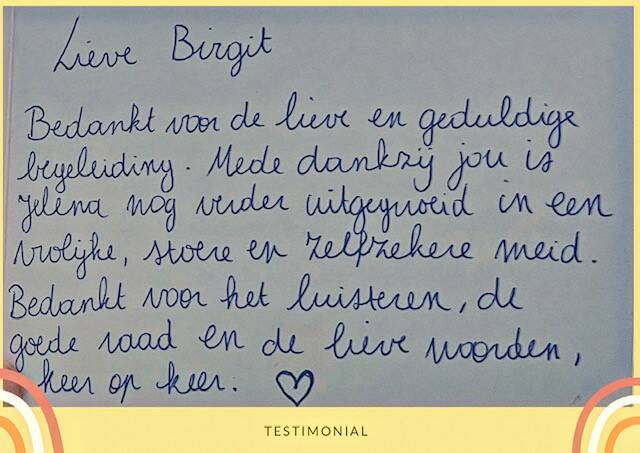 Lieve Birgit
Bedankt voor de lieve en geduldige
begeleiding. Mede dankzij jou is
Jelena nog verder uitgegroeid in een
vrolijke, stoere en zelfzekere meid.
Bedankt voor het luisteren, de
goede raad en de lieve woorden,
keer op keer. ♡
TESTIMONIAL